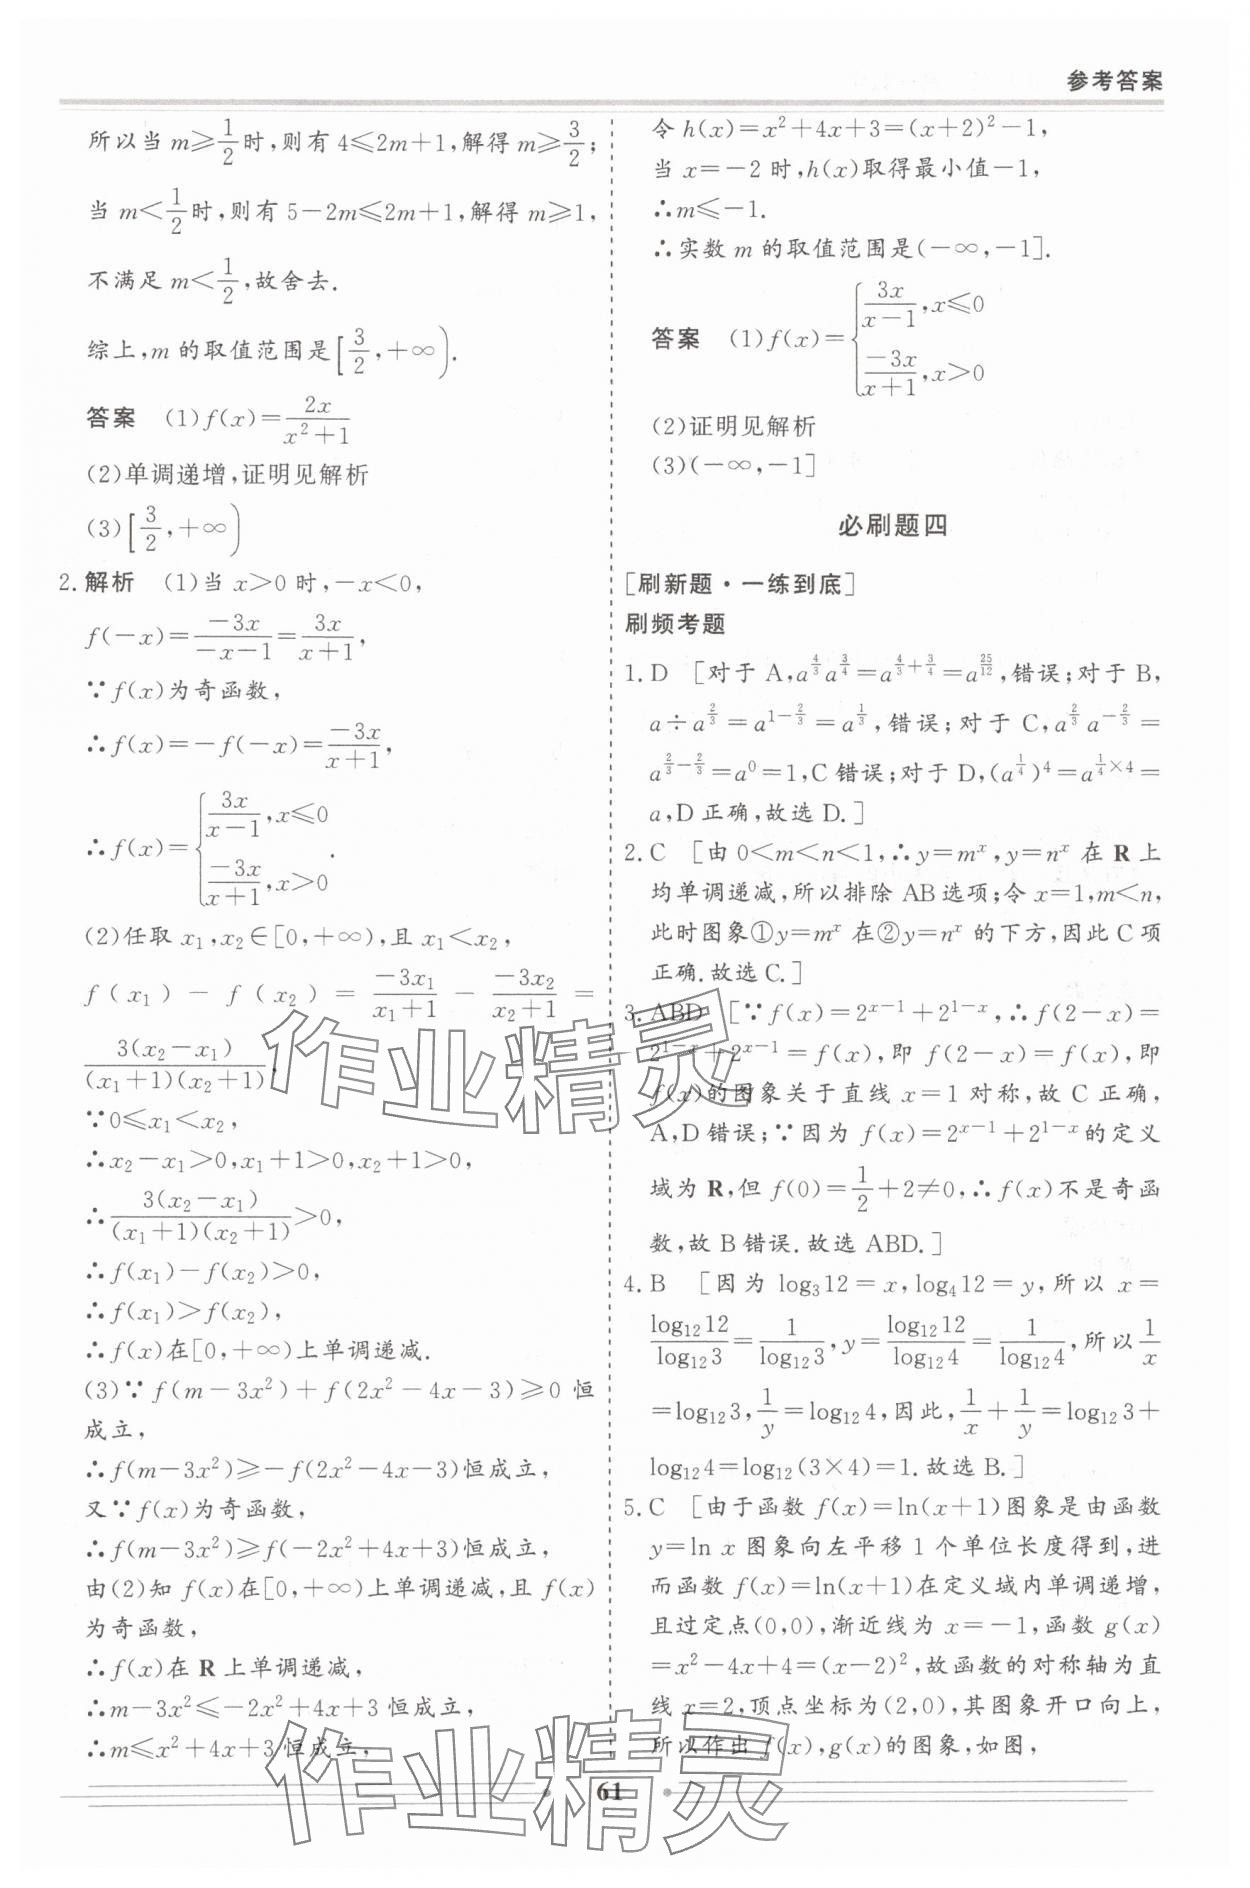 参考答案
所以当 m≥1/2时,则有 4≤2m+1,解得 m≥3/2;
当 m<1/2时,则有 5-2m≤2m+1,解得 m≥1,
不满足 m<1/2,故舍去.
综上,m 的取值范围是[3/2,+∞).
答案 (1)f(x)=2x/(x²+1)
(2)单调递增,证明见解析
(3)[3/2,+∞)
2. 解析 (1)当 x>0 时,-x<0,
f(-x)=-3x/(-x-1)=3x/(x+1),
∵f(x)为奇函数,
∴f(x)=-f(-x)=-3x/(x+1),
∴f(x)={3x/(x-1),x≤0
-3x/(x+1),x>0.
(2)任取 x₁,x₂∈[0,+∞),且 x₁<x₂,
f(x₁)-f(x₂)=-3x₁/(x₁+1)--3x₂/(x₂+1)=
3(x₂-x₁)/((x₁+1)(x₂+1),
∵0≤x₁<x₂,
∴x₂-x₁>0,x₁+1>0,x₂+1>0,
∴3(x₂-x₁)/((x₁+1)(x₂+1))>0,
∴f(x₁)-f(x₂)>0,
∴f(x₁)>f(x₂),
∴f(x)在[0,+∞)上单调递减.
(3)∵f(m-3x²)+f(2x²-4x-3)≥0 恒
成立,
∴f(m-3x²)≥-f(2x²-4x-3)恒成立,
又∵f(x)为奇函数,
∴f(m-3x²)≥f(-2x²+4x+3)恒成立,
由(2)知 f(x)在[0,+∞)上单调递减,且 f(x)
为奇函数,
∴f(x)在 R 上单调递减,
∴m-3x²≤-2x²+4x+3 恒成立,
∴m≤x²+4x+3 恒成立,
令 h(x)=x²+4x+3=(x+2)²-1,
当 x=-2 时,h(x)取得最小值-1,
∴m≤-1.
∴实数 m 的取值范围是(-∞,-1].
答案 (1)f(x)={3x/(x-1),x≤0
-3x/(x+1),x>0
(2)证明见解析
(3)(-∞,-1]
必刷题四
[刷新题·一练到底]
刷频考题
1. D [对于 A,a^(4/3)a^(3/4)=a^(4/3+3/4)=a^(25/12),错误;对于 B,
a÷a^(2/3)=a^(1-2/3)=a^(1/3),错误;对于 C,a^(2/3)a^(-2/3)=
a^(2/3-2/3)=a⁰=1,C 错误;对于 D,(a^(1/4))⁴=a^(1/4×4)=
a,D 正确,故选 D.]
2. C [由 0<m<n<1,∴y=mˣ,y=nˣ 在 R 上
均单调递减,所以排除 AB 选项;令 x=1,m<n,
此时图象①y=mˣ 在②y=nˣ 的下方,因此 C 项
正确.故选 C.]
3. ABD [∵f(x)=2^(x-1)+2^(1-x),∴f(2-x)=
2^(1-x)+2^(x-1)=f(x),即 f(2-x)=f(x),即
f(x)的图象关于直线 x=1 对称,故 C 正确,
A,D 错误;∵因为 f(x)=2^(x-1)+2^(1-x)的定义
域为 R,但 f(0)=1/2+2≠0,∴f(x)不是奇函
数,故 B 错误.故选 ABD.]
4. B [因为 log₃12=x,log₄12=y,所以 x=
log₁₂12/log₁₂3=1/log₁₂3,y=log₁₂12/log₁₂4=1/log₁₂4,所以1/x
=log₁₂3,1/y=log₁₂4,因此,1/x+1/y=log₁₂3+
log₁₂4=log₁₂(3×4)=1.故选 B.]
5. C [由于函数 f(x)=ln(x+1)图象是由函数
y=ln x 图象向左平移 1 个单位长度得到,进
而函数 f(x)=ln(x+1)在定义域内单调递增,
且过定点(0,0),渐近线为 x=-1,函数 g(x)
=x²-4x+4=(x-2)²,故函数的对称轴为直
线 x=2,顶点坐标为(2,0),其图象开口向上,
所以作出 f(x),g(x)的图象,如图,
61
作业精灵
作业精灵